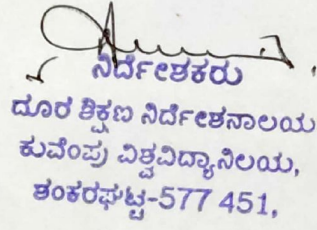 ನಿರ್ದೇಶಕರು
ದೂರ ಶಿಕ್ಷಣ ನಿರ್ದೇಶನಾಲಯ
ಕುವೆಂಪು ವಿಶ್ವವಿದ್ಯಾನಿಲಯ,
ಶಂಕರಘಟ್ಟ-577 451,